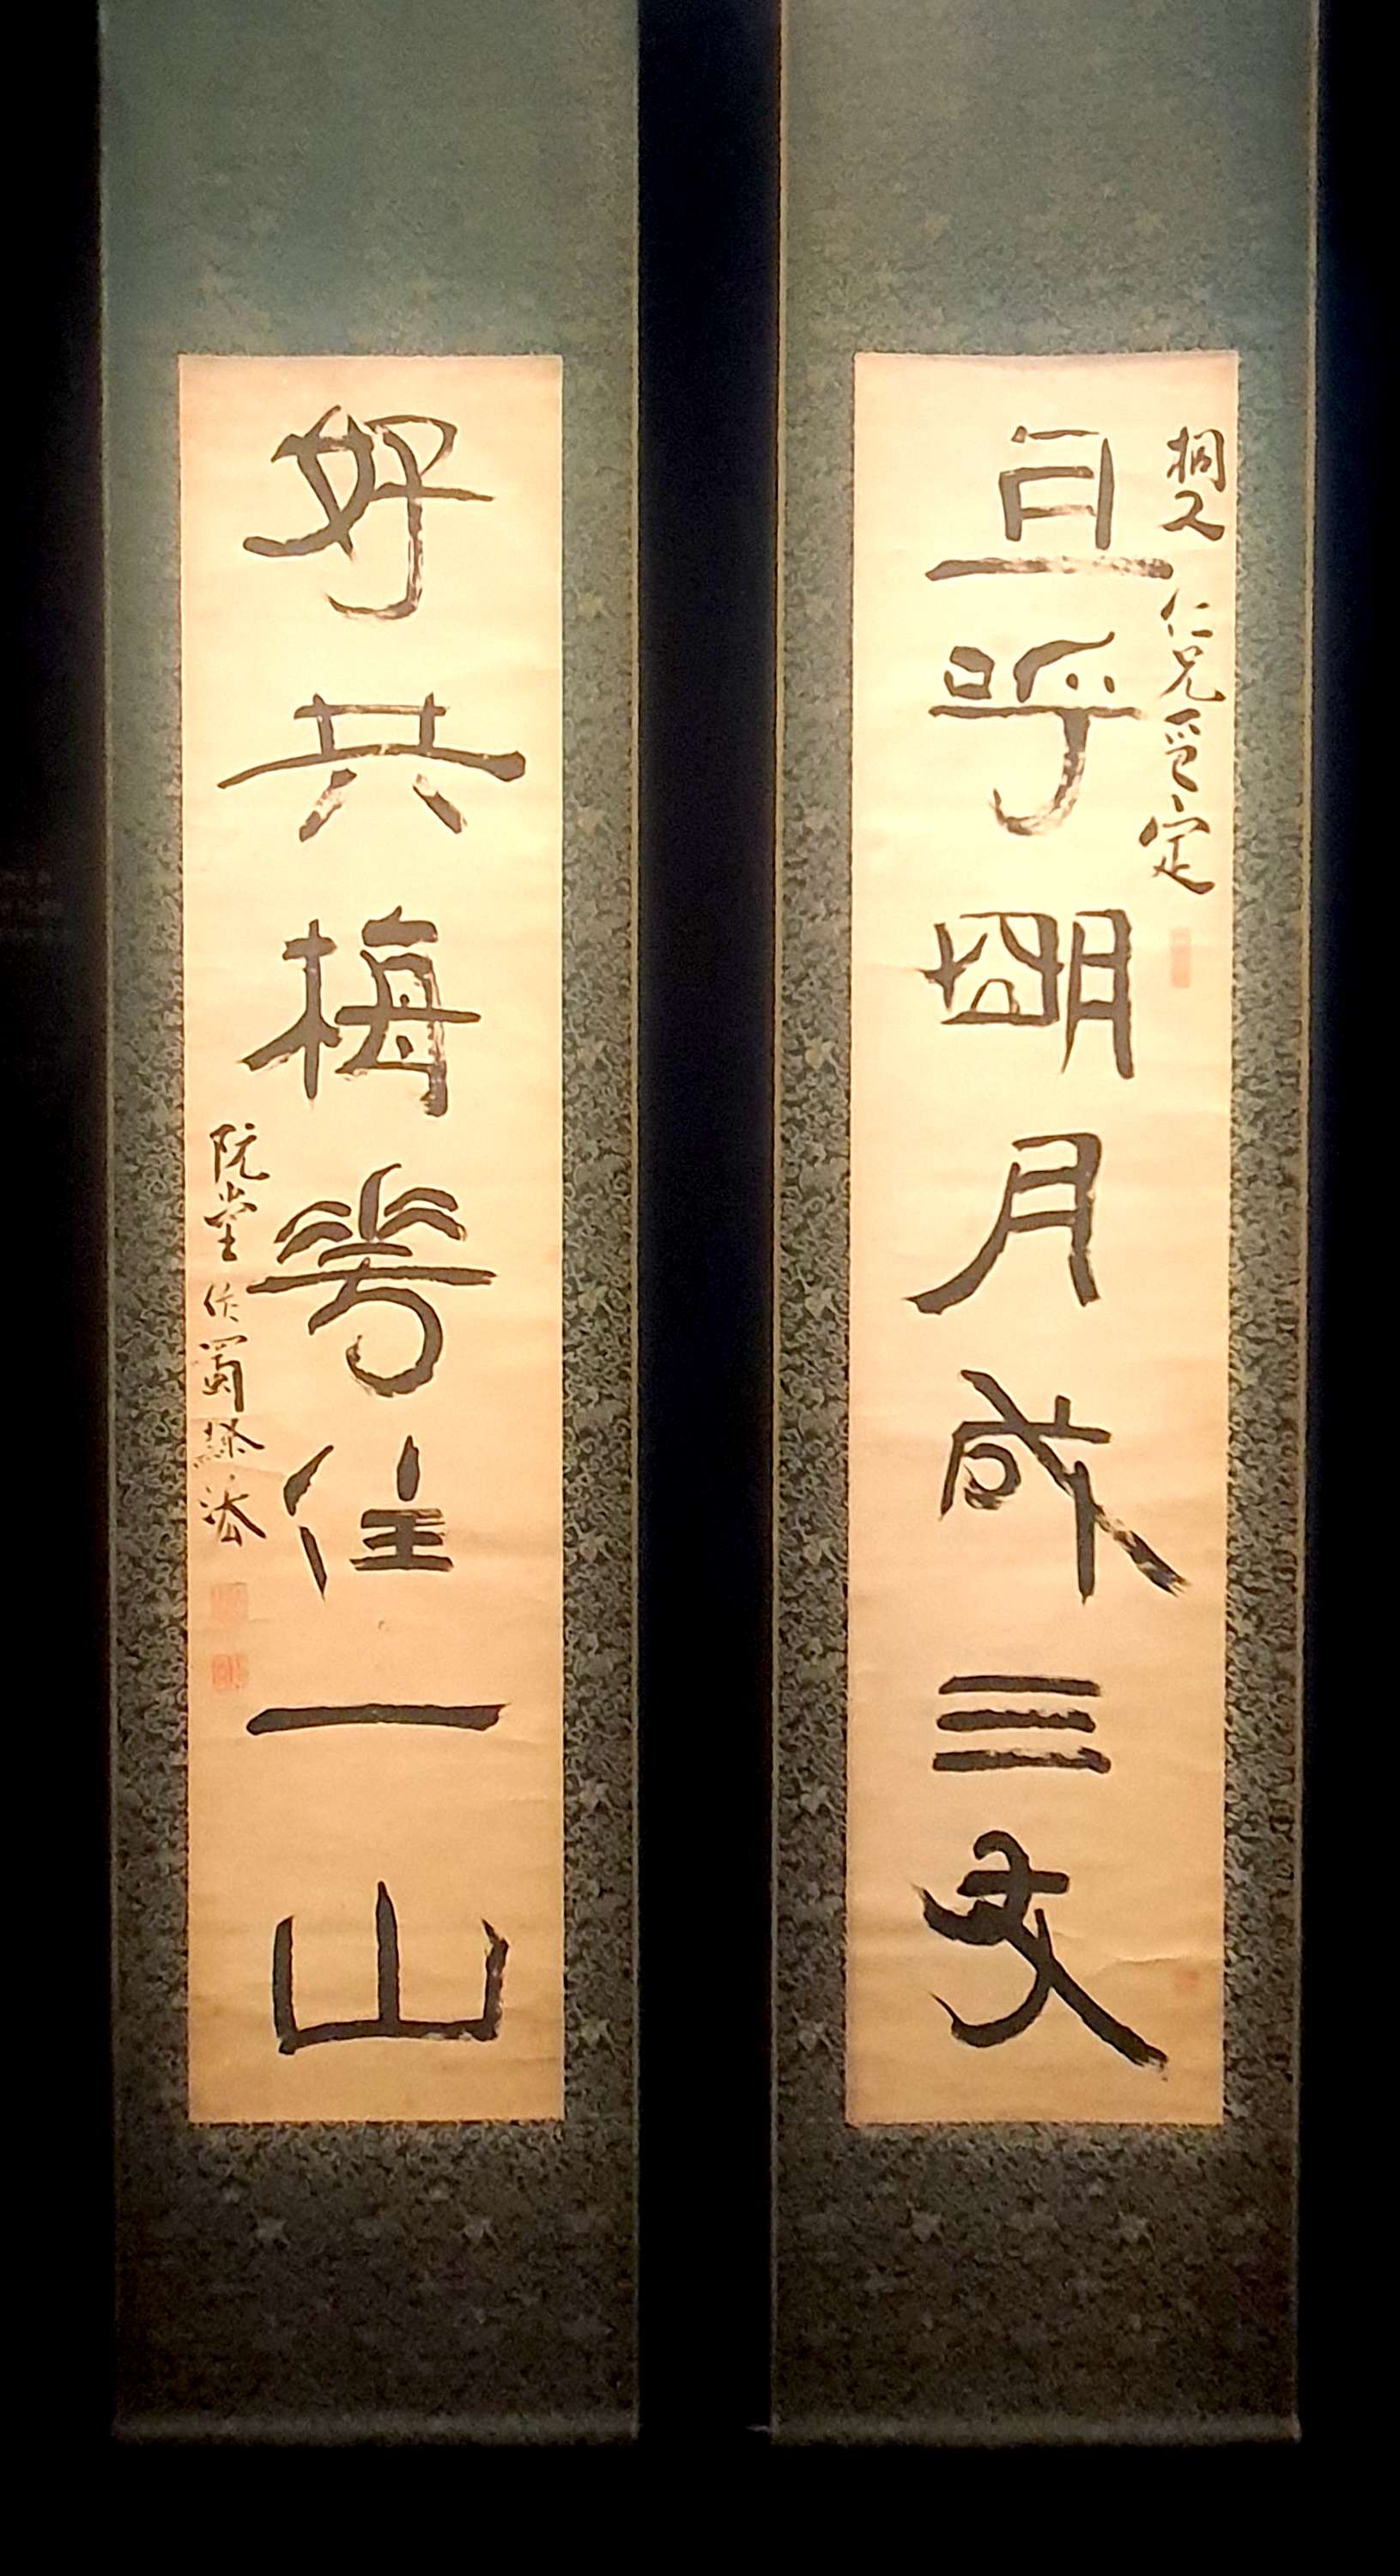 桐人仁兄正定
且呼明月成三友
好共梅花住一山
阮堂作蜀隸法